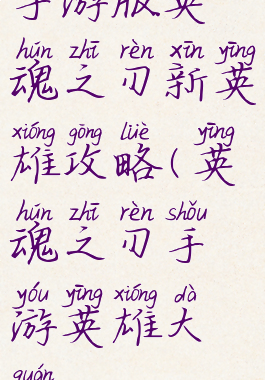 手游版英
hún zhī rèn xīn yīng
魂之刃新英
xióng gōng lüè yīng
雄攻略(英
hún zhī rèn shǒu
魂之刃手
yóu yīng xióng dà
游英雄大
quán